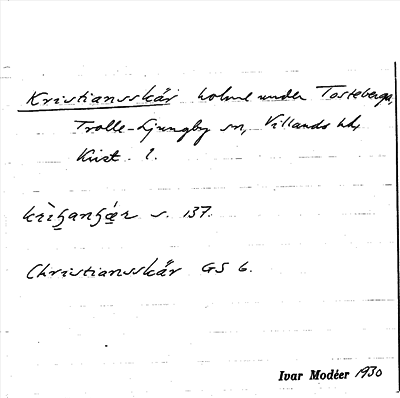 Kristiansskär holme under Tosteberga,
Trolle-Ljungby sn, Villands hd,
Krist. l.
s. 137.
Christiansskär GS 6.
Ivar Modéer 1930